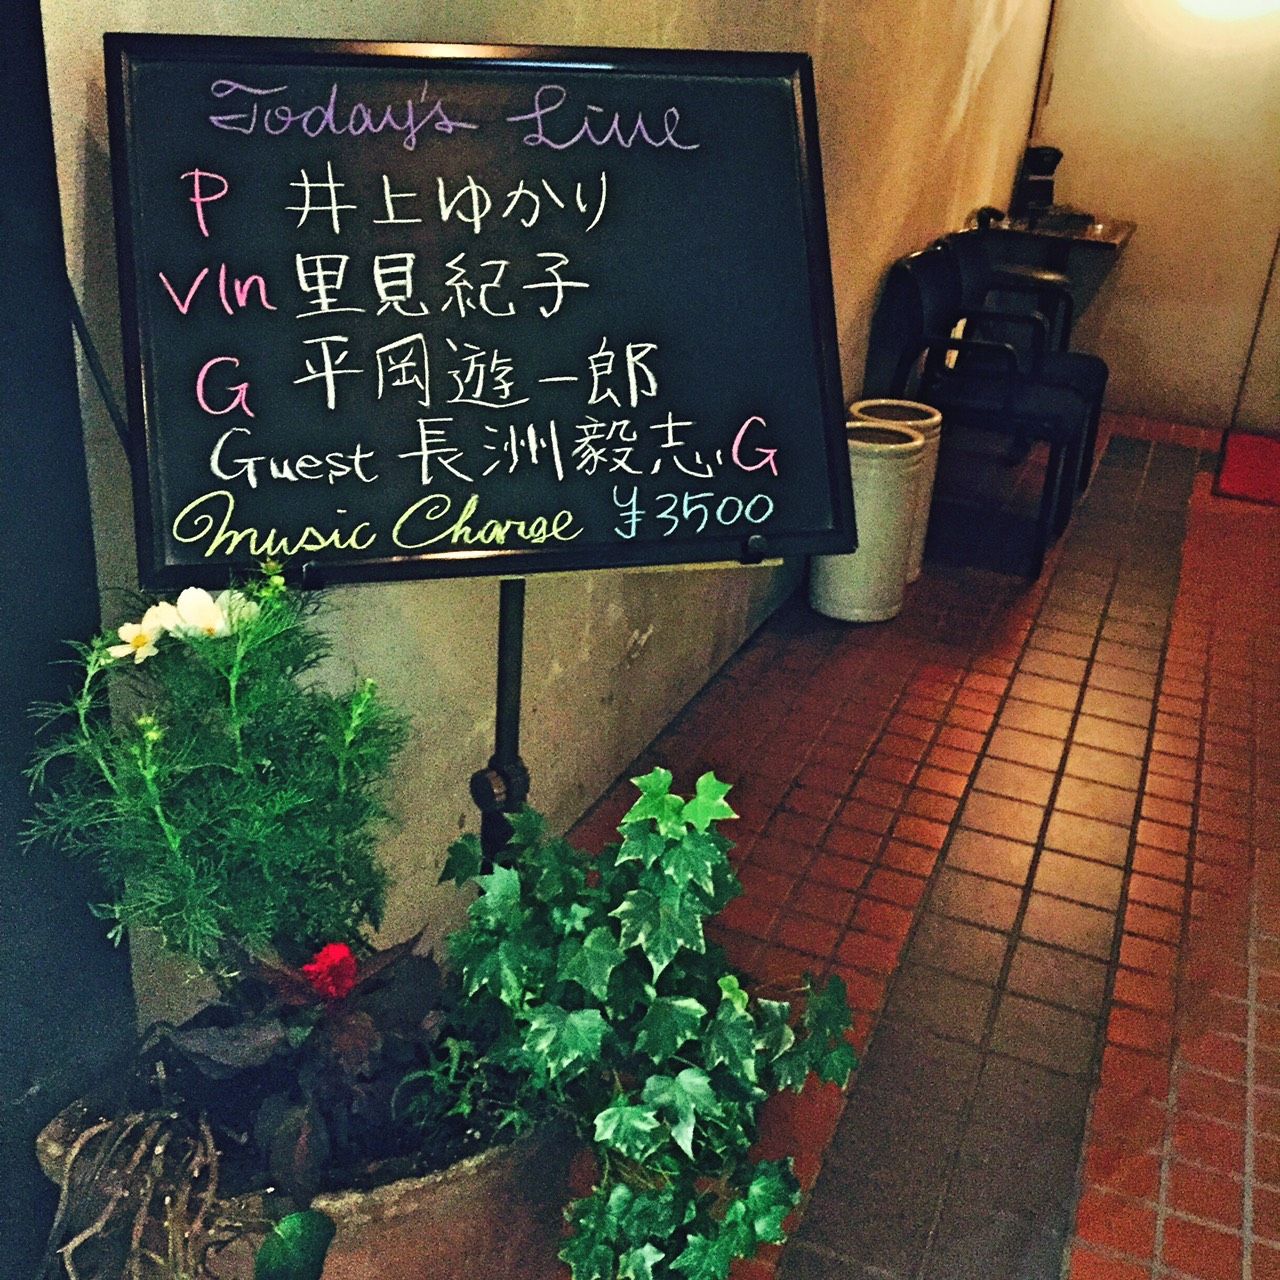 Today's Live
P 井上ゆかり
Vln 里見紀子
G 平岡遊一郎
Guest 長洲毅志 G
Music Charge ¥3500